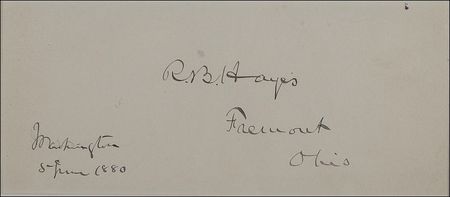 R.B. Hayes
Fremont
Ohio
Washington
5 June 1880